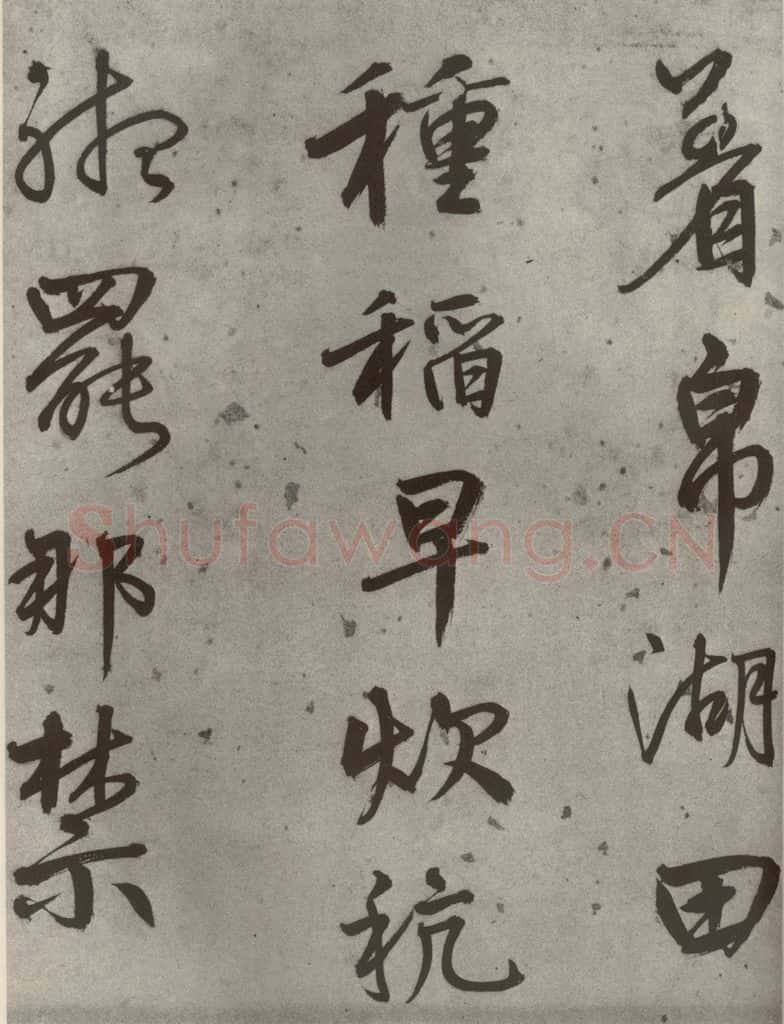 着帛湖田
種稻早炊秔
罷那禁
Shufawang.CN